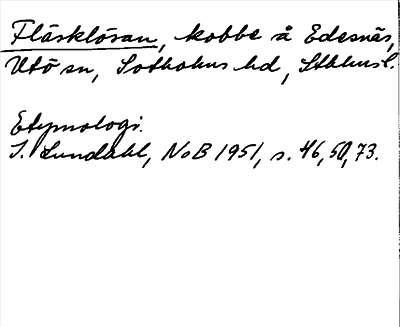 Fläsklösan, kobbe å Edesnäs,
Utö sn, Sotholms hd, Sthlms l.
Etymologi.
I. Lundahl, NoB 1951, s. 46, 50, 73.